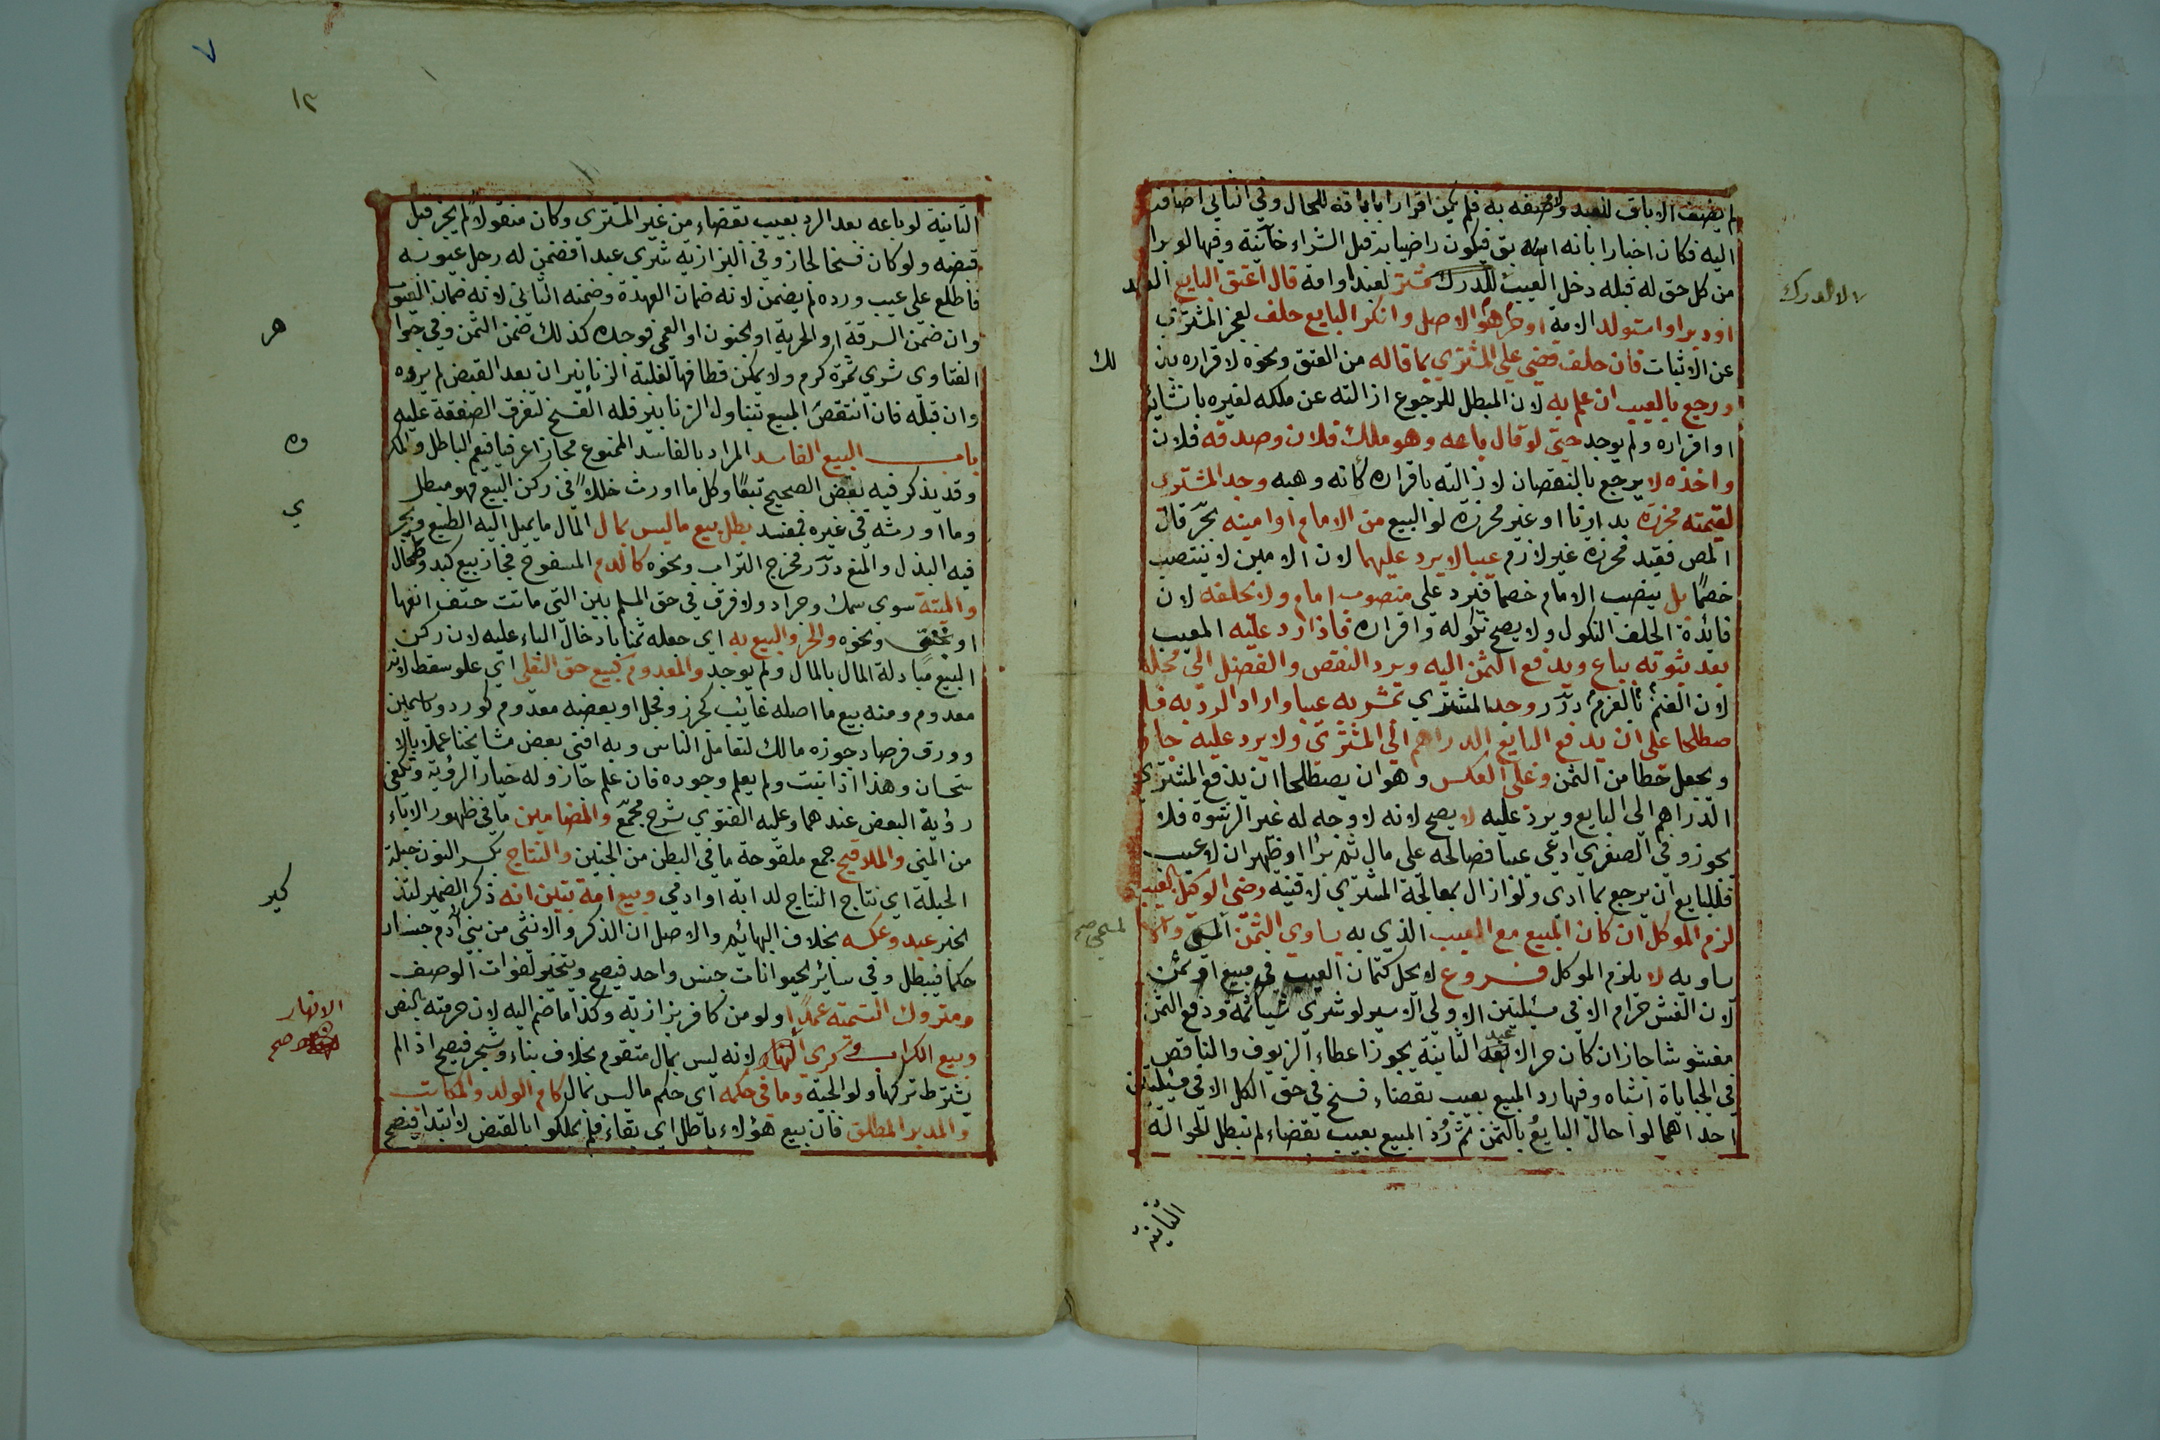 لم يضف الاباق للعبد ولا وصفه به فلم يكن اقرارا باباقه للحال وفي الثاني اضافه
اليه فكان اخبارا بانه ابق فيكون راضيا به قبل الشراء خانية وفيها لو برا
من كل حق له قبله دخل العيب لا الدرك مشتر لعبد او امة قال اعتق البايع العبد
او دبر او استولد الامة او هو حر الاصل وانكر البايع حلف لعجز المشتري
عن الاثبات فان حلف قضي على المشتري بما قاله من العتق ونحوه لاقراره بذلك
ورجع بالعيب ان علم به لان المبطل للرجوع ازالته عن ملكه لغيره بانشائه
او اقراره ولم يوجد حتى لو قال باعه وهو ملك فلان وصدقه فلان
واخذه لا يرجع بالنقصان لازالته باقراره كأنه وهبه وجد المشتري
لغنيمته محرزة بدارنا او غير محرزة لو البيع من الامام او امينه بحر قال
المص فقيد محرزة غير لازم عيبا لا يرد عليهما لان الامين لا ينتصب
خصما بل ينصب الامام خصما فيرد على منصوب امام ولا يحلفه لان
فائدة الحلف النكول ولا يصح نكوله واقراره فاذا رد عليه المعيب
بعد ثبوته يباع ويدفع الثمن اليه ويرد النقص والفضل الى محله
لان الغنم بالغرم درر وجد المشتري بمشريه عيبا واراد الرد به فا
صطلحا على ان يدفع البايع الدراهم الى المشتري ولا يرد عليه جاز
ويجعل حطا من الثمن وعلى العكس وهو ان يصطلحا ان يدفع المشتري
الدراهم الى البايع ويرد عليه لا يصح لانه لا وجه له غير الرشوة فلا
يجوز وفي الصغري ادعى عيبا فصالحه على مال ثم برا او ظهر ان لا عيب
فللبايع ان يرجع بما ادي ولو زال بمعالجة المشتري لا قنية رضي الوكيل بالعيب
لزم الموكل ان كان المبيع مع العيب الذي به يساوي الثمن المسمى والا
يساويه لا يلزم الموكل فروع لا يحل كتمان العيب في مبيع او ثمن
لان الغش حرام الا في مسئلتين الاولى الاسير لو شري شيا ثمة ودفع الثمن
مغشوشا جاز ان كان حرا لا عبد الثانية يجوز اعطاء الزيوف والناقص
في الجبايات اشباه وفيها رد المبيع بعيب بقضاء فسخ في حق الكل الا في مسئلتين
احداهما لو احال البايع بالثمن ثم رد المبيع بعيب بقضاء لم تبطل الحوالة
الثانية
لا الدرك
لك
المسمى صح
٧
١٣
الثانية لو باعه بعد الرد بعيب بقضاء من غير المشتري وكان منقولا لم يجز قبل
قبضه ولو كان فسخا لجاز وفي البزازية شري عبدا فضمن له رجل عيوبه
فاطلع على عيب ورده لم يضمن لانه ضمان العهدة وضمنه الثاني لانه ضمان العيوب
وان ضمن السرقة او الحرية او الجنون او العمى فوجده كذلك ضمن الثمن وفي جوا
هر
الفتاوي شري ثمرة كرم ولا يمكن قطافها لغلبة الزنابير ان بعد القبض لم يرده
وان قبله فان انتقص المبيع بتناول الزنابير فله الفسخ لتفرق الصفقة عليه
باب البيع الفاسد المراد بالفاسد الممنوع مجازا عرفيا فيعم الباطل والمكر
وه
وقد يذكر فيه بعض الصحيح تبعا وكل ما اورث خللا في ركن البيع فهو مبطل
وما اورثه في غيره فمفسد بطل بيع ما ليس بمال المال ما يميل اليه الطبع ويجر
ي
فيه البذل والمنع درر فخرج التراب ونحوه كالدم المسفوح فجاز بيع كبد وطحال
والميتة سوي سمك وجراد ولا فرق في حق المسلم بين التي ماتت حتف انفها
او بخنق ونحوه والحر والبيع به اي جعله ثمنا بادخال الباء عليه لان ركن
البيع مبادلة المال بالمال ولم يوجد والمعدوم كبيع حق التعلي اي علو سقط لانه
معدوم ومنه بيع ما اصله غائب كجزر وفجل او بعضه معدوم كورد وياسمين
وورق فرصاد جوزه مالك لتعامل الناس وبه افتى بعض مشايخنا عملا بالا
ستحسان وهذا اذا نبت ولم يعلم وجوده فان علم جاز وله خيار الرؤية وتكفي
رؤية البعض عندهما وعليه الفتوي شرح مجمع والمضامين ما في ظهور الاباء
من المني والملاقيح جمع ملقوحة ما في البطن من الجنين والنتاج بكسر النون حبلة
الحبلة اي نتاج النتاج لدابة او ادمي وبيع امة تبين انه ذكر الضمير لتذ
كير
الخبر عبد وعكسه بخلاف البهائم والاصل ان الذكر والانثى من بني ادم جنسان
حكما فيبطل وفي سائر الحيوانات جنس واحد فيصح ويتخير لفوات الوصف
ومتروك التسمية عمدا ولو من كافر بزازية وكذا ما ضم اليه لان حرمته بالنص
وبيع الكراب وكري الانهار لانه ليس بمال متقوم بخلاف بناء وشجر فيصح اذا لم
الانهار
صح
يشترط تركها ولوالجية وما في حكمه اي حكم ما ليس بمال كام الولد والمكاتب
والمدبر المطلق فان بيع هؤلاء باطل اي بقاء فلم يملكوا بالقبض لا ابتداء فيصح